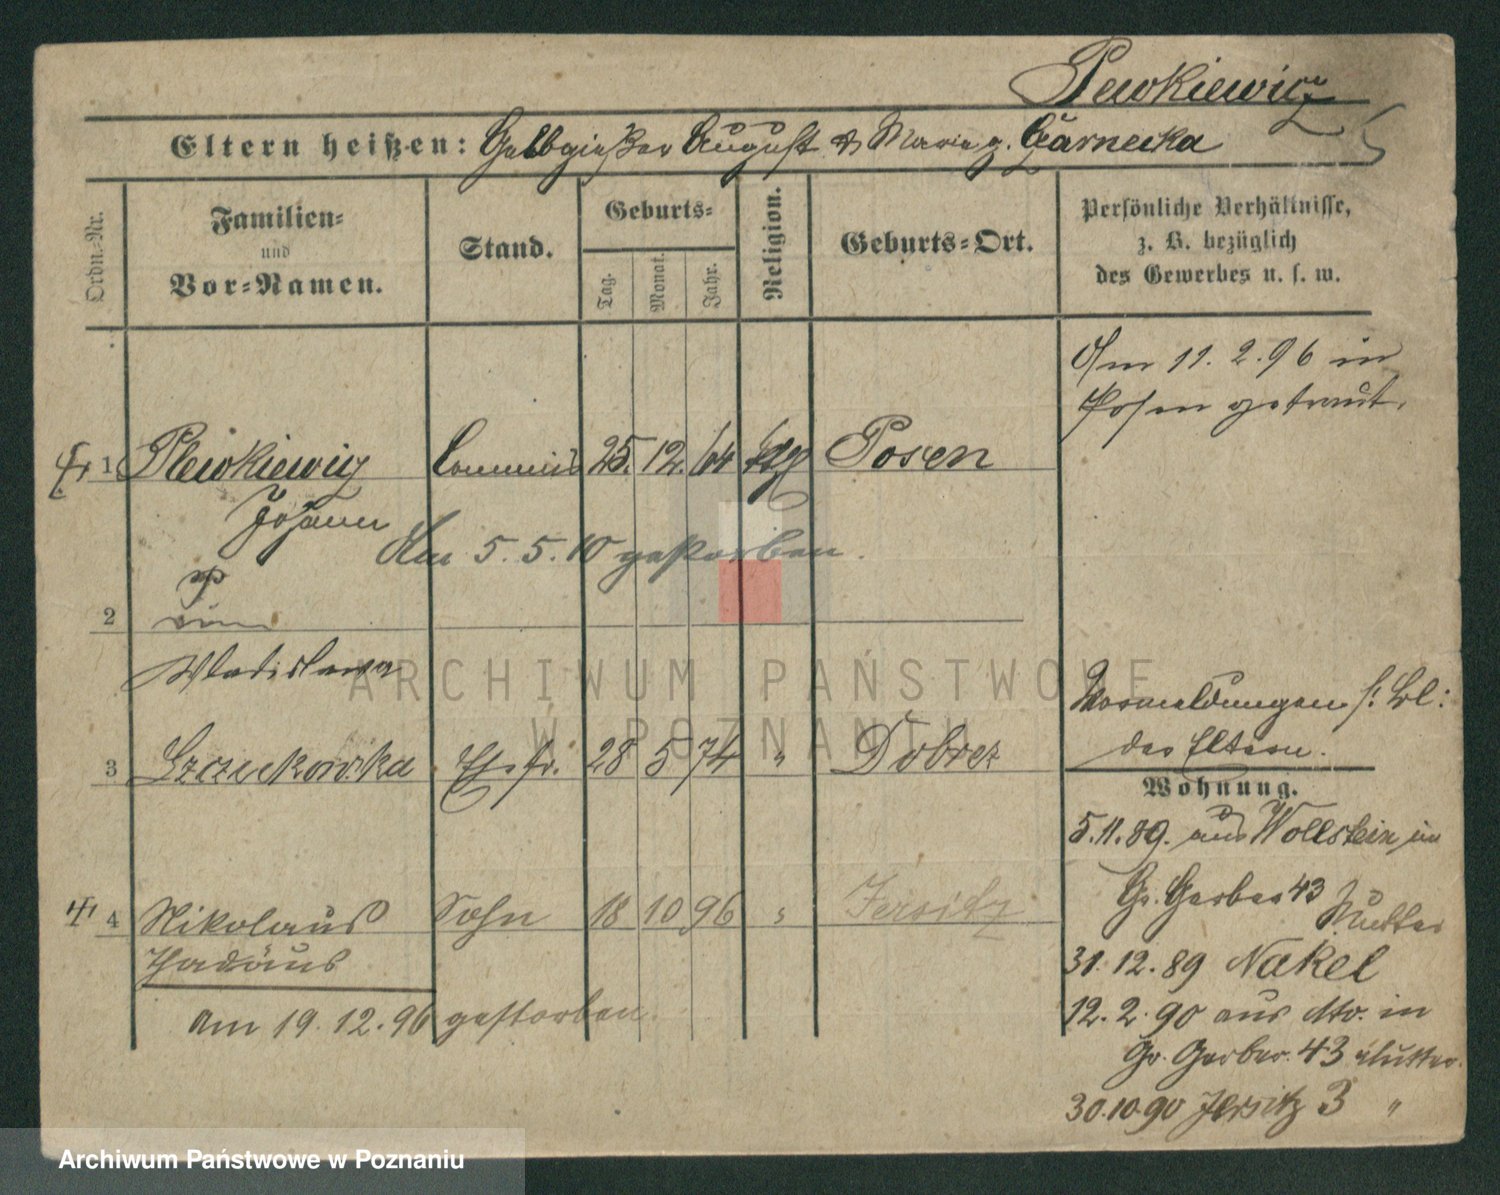 Plewkiewicz
Eltern heißen: Gelbgießer August & Marie g. Czarnecka
Ordn.-Nr.
Familien-
und
Vor-Namen.
Stand.
Geburts-
Tag.
Monat.
Jahr.
Religion.
Geburts-Ort.
Persönliche Verhältnisse,
z. B. bezüglich
des Gewerbes u. s. w.
Am 11. 2. 96 in
Posen getraut.
1 Plewkiewicz Commis 25. 12. 64 ktg Posen
Johann
Am 5. 5. 10 gestorben.
2
Wladislawa
3 Szczuckowska Ehefr. 28 5 74 " Dobrez
Vormeldungen s. Bl:
der Eltern.
Wohnung.
5.11.89. aus Wollstein in
Gr. Gerber 43 Mutter
4 Nikolaus Sohn 18 10 96 " Jersitz
Thadäus
am 19. 12. 96 gestorben.
31. 12. 89 Nakel
12. 2. 90 aus dto. in
Gr. Gerber. 43 Mutter.
30.10.90 Jersitz 3 "
ARCHIWUM PAŃSTWOWE
W POZNANIU
Archiwum Państwowe w Poznaniu